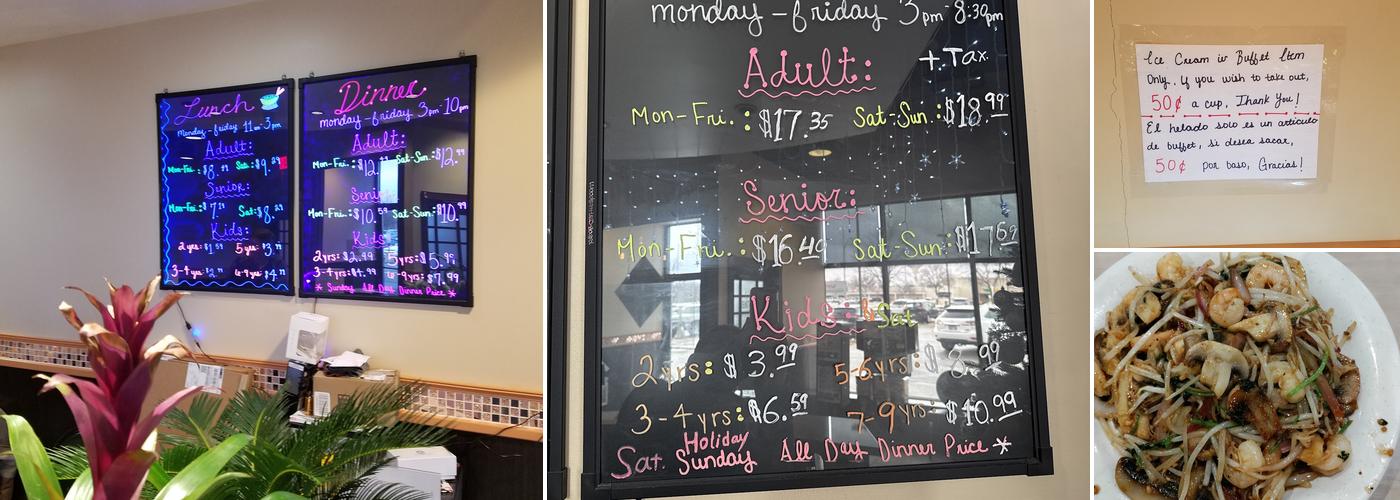 Lunch
monday - friday 11am - 3pm
Adult:
Mon-Fri.: $8.99 Sat.: $9.
Senior:
Mon-Fri.: $7. Sat: $8.
Kids:
2 yrs: $1.59 5 yrs: $3.
3-4 yrs: $2. 6-9 yrs: $4.
Dinner
monday - friday 3pm - 10pm
Adult:
Mon-Fri.: $12. Sat-Sun.: $12.99
Senior
Mon-Fri.: $10.59 Sat-Sun: $10.99
Kids
2 yrs: $2.99 5 yrs: $5.99
3-4 yrs: $4.99 6-9 yrs: $7.99
* Sunday All Day Dinner Price *
monday - friday 3pm - 8:30pm
Adult: + Tax
Mon-Fri.: $17.35 Sat-Sun: $18.99
Senior:
Mon-Fri.: $16.49 Sat-Sun: $17.69
Kids: & Sat
2yrs: $3.99 5-6yrs: $8.99
3-4yrs: $6.59 7-9yrs: $10.99
Sat. Holiday Sunday All Day Dinner Price *
Ice Cream is Buffet Item
Only. If you wish to take out,
50¢ a cup, Thank You!
El helado solo es un artículo
de buffet, si desea sacar,
50¢ por baso, Gracias!